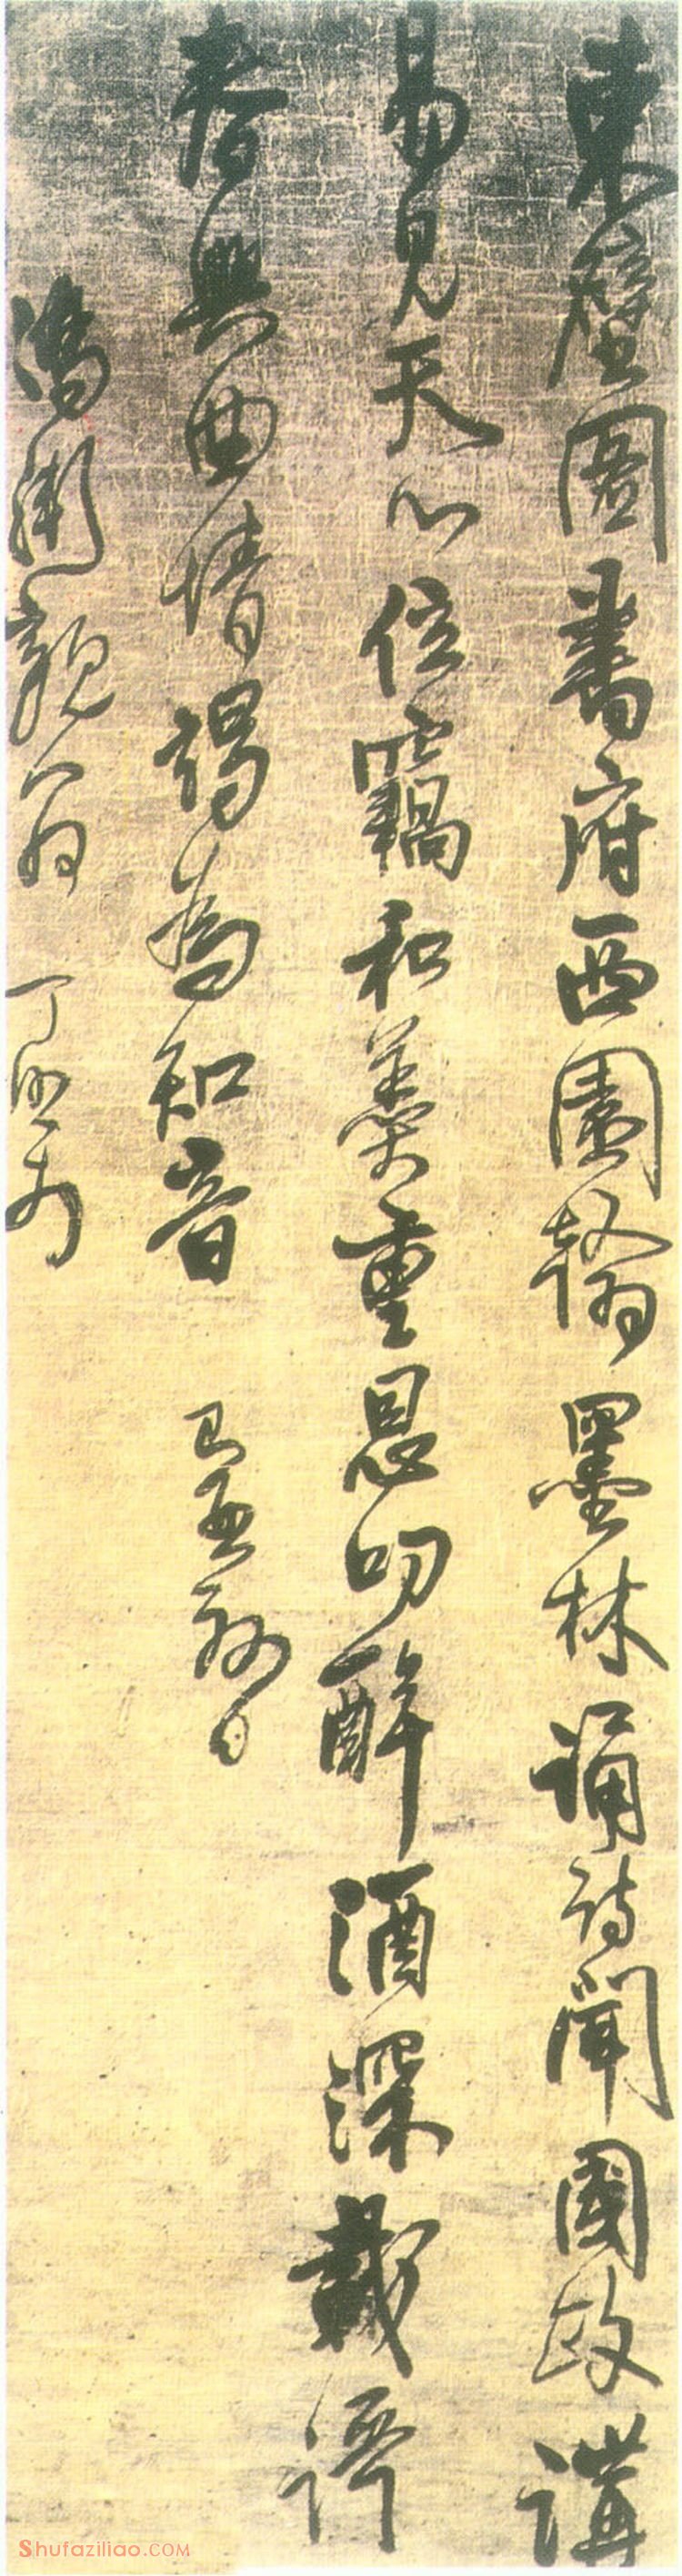 東壁圖書府西園翰墨林誦詩聞國政講
易見天心位竊和羹重恩叨醉酒深載謌
春興曲情竭為知音 日
親翁 丁
Shufaziliao.COM